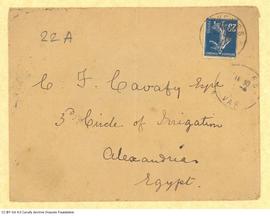 22 A
C. F. Cavafy Esqre
3rd Circle of Irrigation
Alexandria
Egypt.
25
VAR
CC BY-SA 4.0 Cavafy Archive Onassis Foundation